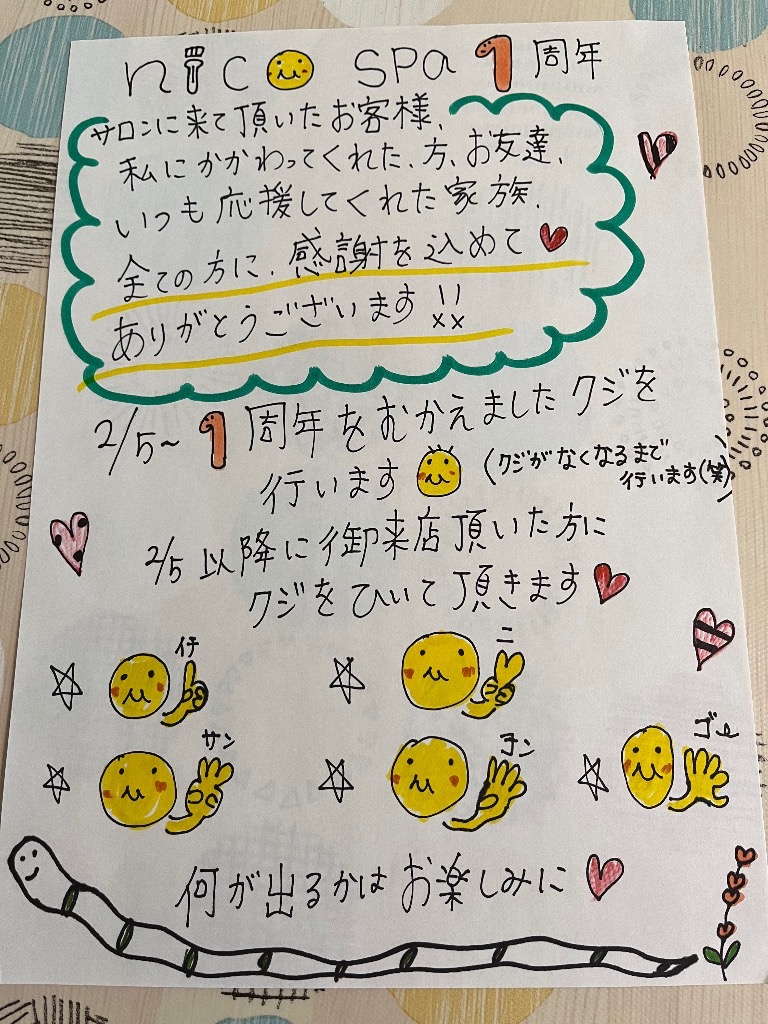 nico spa 1周年
サロンに来て頂いたお客様、
私にかかわってくれた、方、お友達、
いつも応援してくれた家族、
全ての方に、感謝を込めて
ありがとうございます!!
2/5~1周年をむかえましたクジを
行います(クジがなくなるまで
行います(笑))
2/5以降に御来店頂いた方に
クジをひいて頂きます
イチ
ニ
サン
ヨン
ゴー
何が出るかはお楽しみに